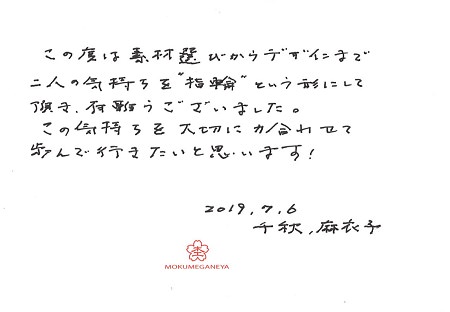 この度は素材選びからデザインまで
二人の気持ちを"指輪"という形にして
頂き、有難うございました。
この気持ちを大切に力合わせて
歩んで行きたいと思います!
2019.7.6
千秋、麻衣子
MOKUMEGANEYA